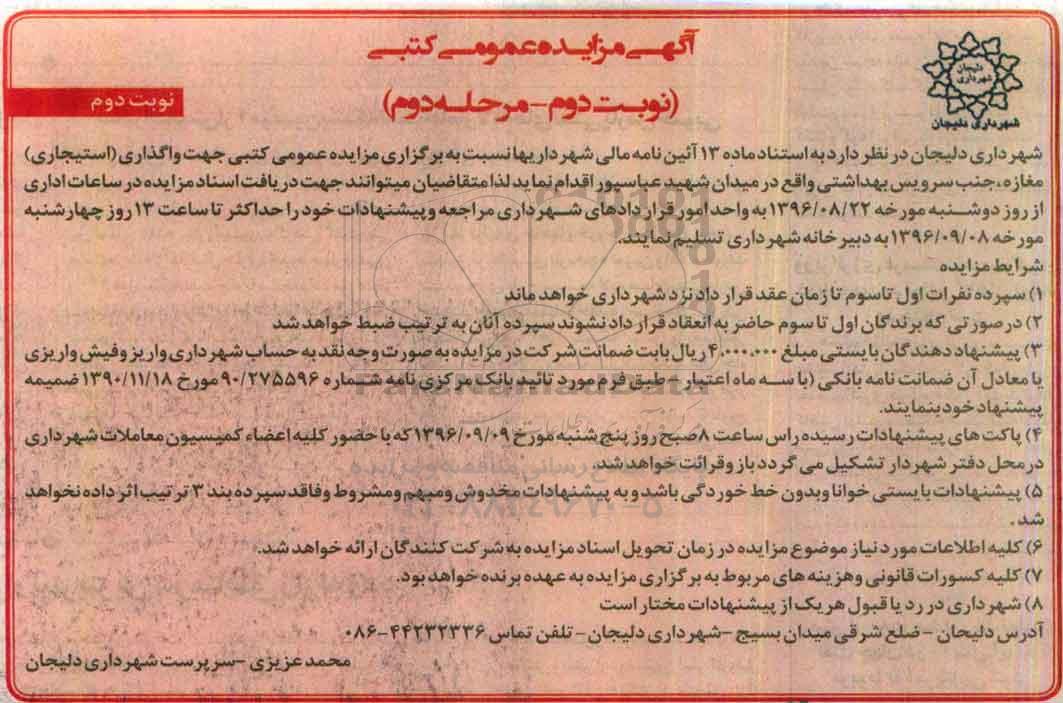 آگهی مزایده عمومی کتبی
(نوبت دوم - مرحله دوم)
نوبت دوم
دلیجان
شهرداری
شهرداری دلیجان
شهرداری دلیجان در نظر دارد به استناد ماده ۱۳ آئین نامه مالی شهرداریها نسبت به برگزاری مزایده عمومی کتبی جهت واگذاری (استیجاری)
مغازه، جنب سرویس بهداشتی واقع در میدان شهید عباسپور اقدام نماید لذا متقاضیان میتوانند جهت دریافت اسناد مزایده در ساعات اداری
از روز دوشنبه مورخه ۱۳۹۶/۰۸/۲۲ به واحد امور قراردادهای شهرداری مراجعه و پیشنهادات خود را حداکثر تا ساعت ۱۳ روز چهارشنبه
مورخه ۱۳۹۶/۰۹/۰۸ به دبیرخانه شهرداری تسلیم نمایند.
شرایط مزایده
۱) سپرده نفرات اول تا سوم تا زمان عقد قرارداد نزد شهرداری خواهد ماند
۲) در صورتی که برندگان اول تا سوم حاضر به انعقاد قرارداد نشوند سپرده آنان به ترتیب ضبط خواهد شد
۳) پیشنهاد دهندگان بایستی مبلغ ۴،۰۰۰،۰۰۰ ریال بابت ضمانت شرکت در مزایده به صورت وجه نقد به حساب شهرداری واریز و فیش واریزی
یا معادل آن ضمانت نامه بانکی (با سه ماه اعتبار - طبق فرم مورد تائید بانک مرکزی نامه شماره ۹۰/۲۷۵۵۹۶ مورخ ۱۳۹۰/۱۱/۱۸ ضمیمه
پیشنهاد خود بنمایند.
۴) پاکت های پیشنهادات رسیده راس ساعت ۸ صبح روز پنج شنبه مورخ ۱۳۹۶/۰۹/۰۹ که با حضور کلیه اعضاء کمیسیون معاملات شهرداری
در محل دفتر شهردار تشکیل می گردد باز و قرائت خواهد شد.
۵) پیشنهادات بایستی خوانا و بدون خط خوردگی باشد و به پیشنهادات مخدوش و مبهم و مشروط و فاقد سپرده بند ۳ ترتیب اثر داده نخواهد
شد.
۶) کلیه اطلاعات مورد نیاز موضوع مزایده در زمان تحویل اسناد مزایده به شرکت کنندگان ارائه خواهد شد.
۷) کلیه کسورات قانونی و هزینه های مربوط به برگزاری مزایده به عهده برنده خواهد بود.
۸) شهرداری در رد یا قبول هر یک از پیشنهادات مختار است
آدرس دلیجان - ضلع شرقی میدان بسیج - شهرداری دلیجان - تلفن تماس ۴۴۲۳۲۳۳۶-۰۸۶
محمد عزیزی - سرپرست شهرداری دلیجان
ParsNamadData